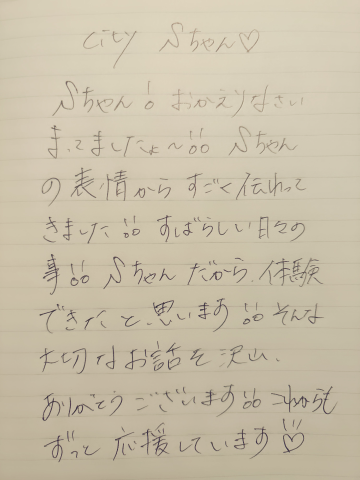 city Sちゃん♡
Sちゃん! おかえりなさい
まってましたょ〜!!! Sちゃん
の表情からすごく伝わって
きました!!! すばらしい日々の
事!!! Sちゃんだから、体験
できたと思います!!! そんな
大切なお話を沢山、
ありがとうございます!!! これからも
ずっと応援しています♡